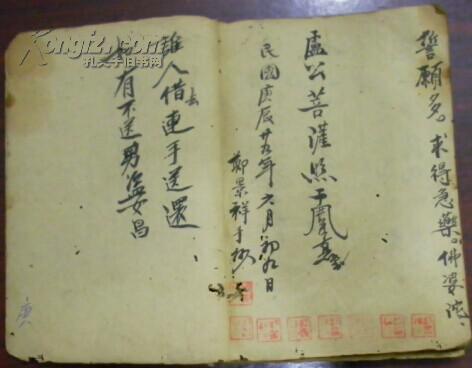 誓願多。求得急藥。佛婆陀。
盧公菩薩
民國庚辰廿九年六月初九日
鄭景祥手抄
誰人借去連手送還
如有不送男盜女昌
庚
Kongfz.com
孔夫子旧书网